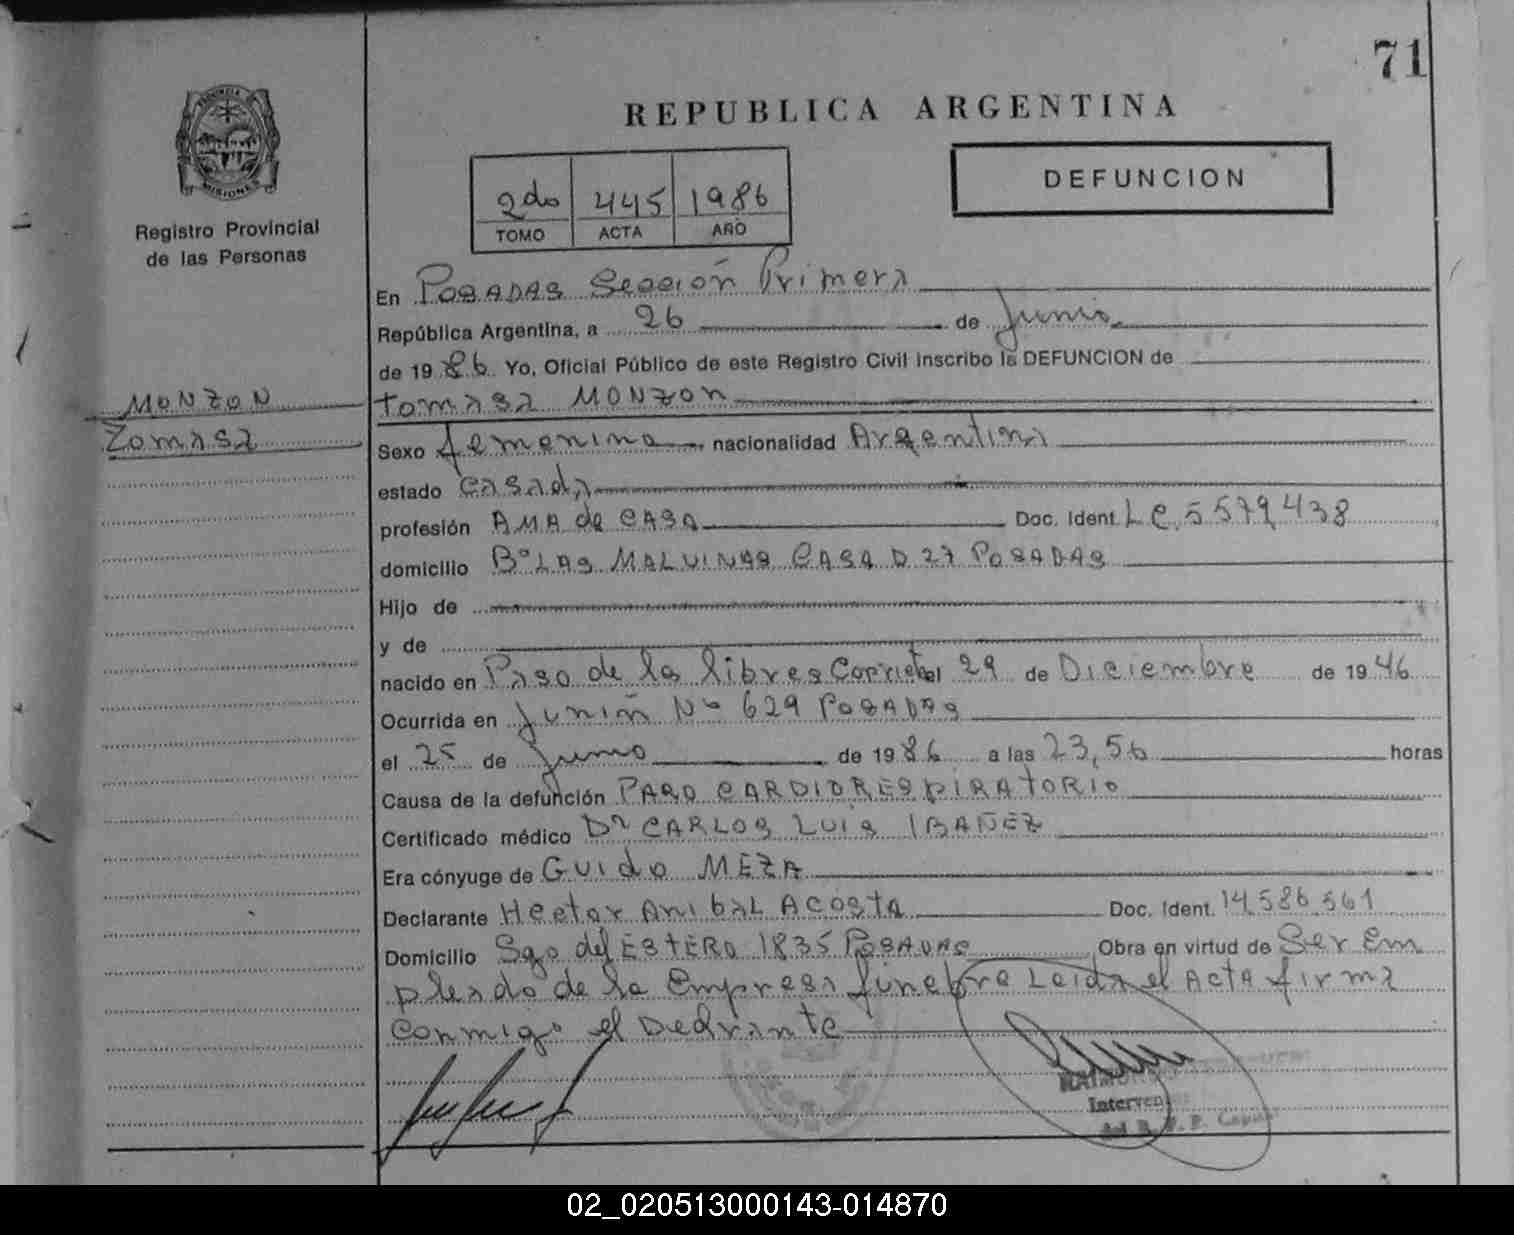 71
REPUBLICA ARGENTINA
PROVINCIA DE
MISIONES
Registro Provincial
de las Personas
2do 445 1986
TOMO ACTA AÑO
DEFUNCION
En POSADAS Sección Primera
República Argentina, a 26 de Junio
de 1986 Yo, Oficial Público de este Registro Civil inscribo la DEFUNCION de
MONZON
Tomasa
tomasa MONZON
Sexo femenino, nacionalidad Argentina
estado casada
profesión AMA de CASA Doc. Ident. L C. 5579,438
domicilio B° LAS MALVINAS CASA D 27 POSADAS
Hijo de
y de
nacido en Paso de los libres Corrientes el 29 de Diciembre de 1946
Ocurrida en Junin No 629 POSADAS
el 25 de Junio de 1986 a las 23,56 horas
Causa de la defunción PARO CARDIORESPIRATORIO
Certificado médico Dr CARLOS LUIS IBAÑEZ
Era cónyuge de Guido MEZA
Declarante Hector Anibal ACOSTA Doc. Ident. 14,586,561
Domicilio Sgo del ESTERO 1835 POSADAS Obra en virtud de Ser Em
pleado de la Empresa funebre Leida el Acta firma
conmigo el Declrante
Interven
02_020513000143-014870